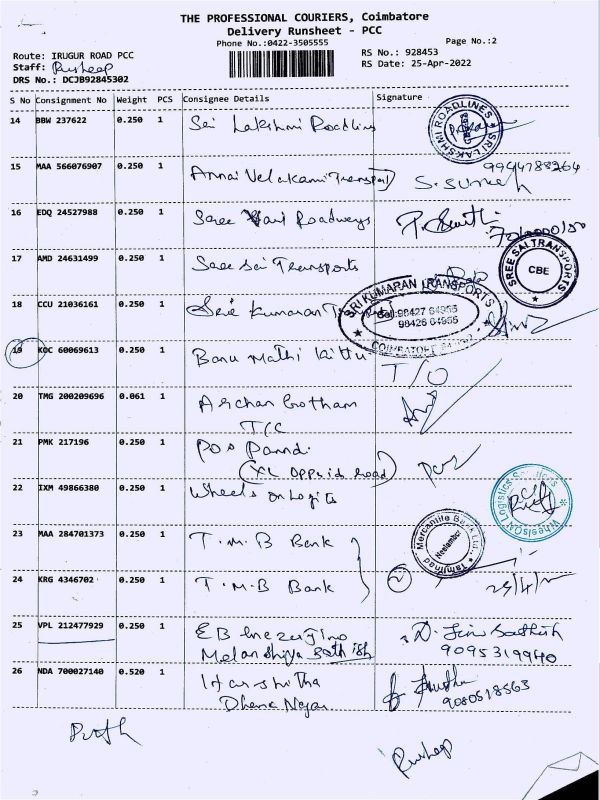 THE PROFESSIONAL COURIERS, Coimbatore
Delivery Runsheet - PCC
Phone No.:0422-3505555
Page No.:2
Route: IRUGUR ROAD PCC
RS No.: 928453
Staff: Pushap
RS Date: 25-Apr-2022
DRS No.: DCJB92845302
S No Consignment No Weight PCS Consignee Details Signature
14 BBW 237622 0.250 1 Sri Lakshmi Roadlines
SRI LAKSHMI ROADLINES
15 MAA 566076907 0.250 1 Annai Velakami Transport S. Suresh
9994788264
16 EDQ 24527988 0.250 1 Sree Hari Roadways
17 AMD 24631499 0.250 1 Sree Sai Transports
SREE SAI TRANSPORTS
CBE
18 CCU 21036161 0.250 1 Sree Kumaran
SRI KUMARAN TRANSPORTS
Cell:98427 64955
98426 64955
19 KOC 60069613 0.250 1 Banu Mathi Kittu T/O
20 TMG 200209696 0.061 1
T/C
21 PMK 217196 0.250 1
22 IXM 49866380 0.250 1 Wheels on Logits
WheelsON Logistics Solutions
23 MAA 284701373 0.250 1 T.M.B Bank
Tamilnad Mercantile Bank Ltd.,
Neelambur
24 KRG 4346702 0.250 1 T.M.B Bank 2
25 VPL 212477929 0.250 1
9095319940
26 NDA 700027140 0.520 1 Harshitha
9080518563
Pushap